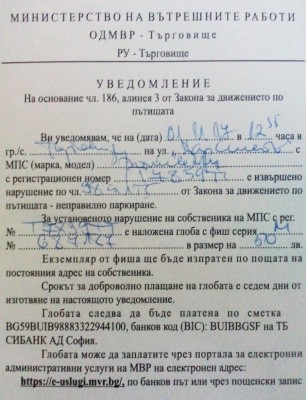 МИНИСТЕРСТВО НА ВЪТРЕШНИТЕ РАБОТИ
ОДМВР - Търговище
РУ - Търговище
УВЕДОМЛЕНИЕ
На основание чл. 186, алинея 3 от Закона за движението по
пътищата
Ви уведомявам, че на (дата) 01.11.17 в 12 35 часа в
гр./с. на ул. с
МПС (марка, модел)
с регистрационен номер с извършено
нарушение по чл. от Закона за движението по
пътищата - неправилно паркиране.
За установеното нарушение на собственика на МПС с рег.
№ е наложена глоба с фиш серия М
№ в размер на 50
Екземпляр от фиша ще бъде изпратен по пощата на
постоянния адрес на собственика.
Срокът за доброволно плащане на глобата е седем дни от
изготвяне на настоящото уведомление.
Глобата следва да бъде платена по сметка
BG59BUIB98883322944100, банков код (BIC): BUIBBGSF на ТБ
СИБАНК АД София.
Глобата може да заплатите чрез портала за електронни
административни услуги на МВР на електронен адрес:
https://e-uslugi.mvr.bg/, по банков път или чрез пощенски запис